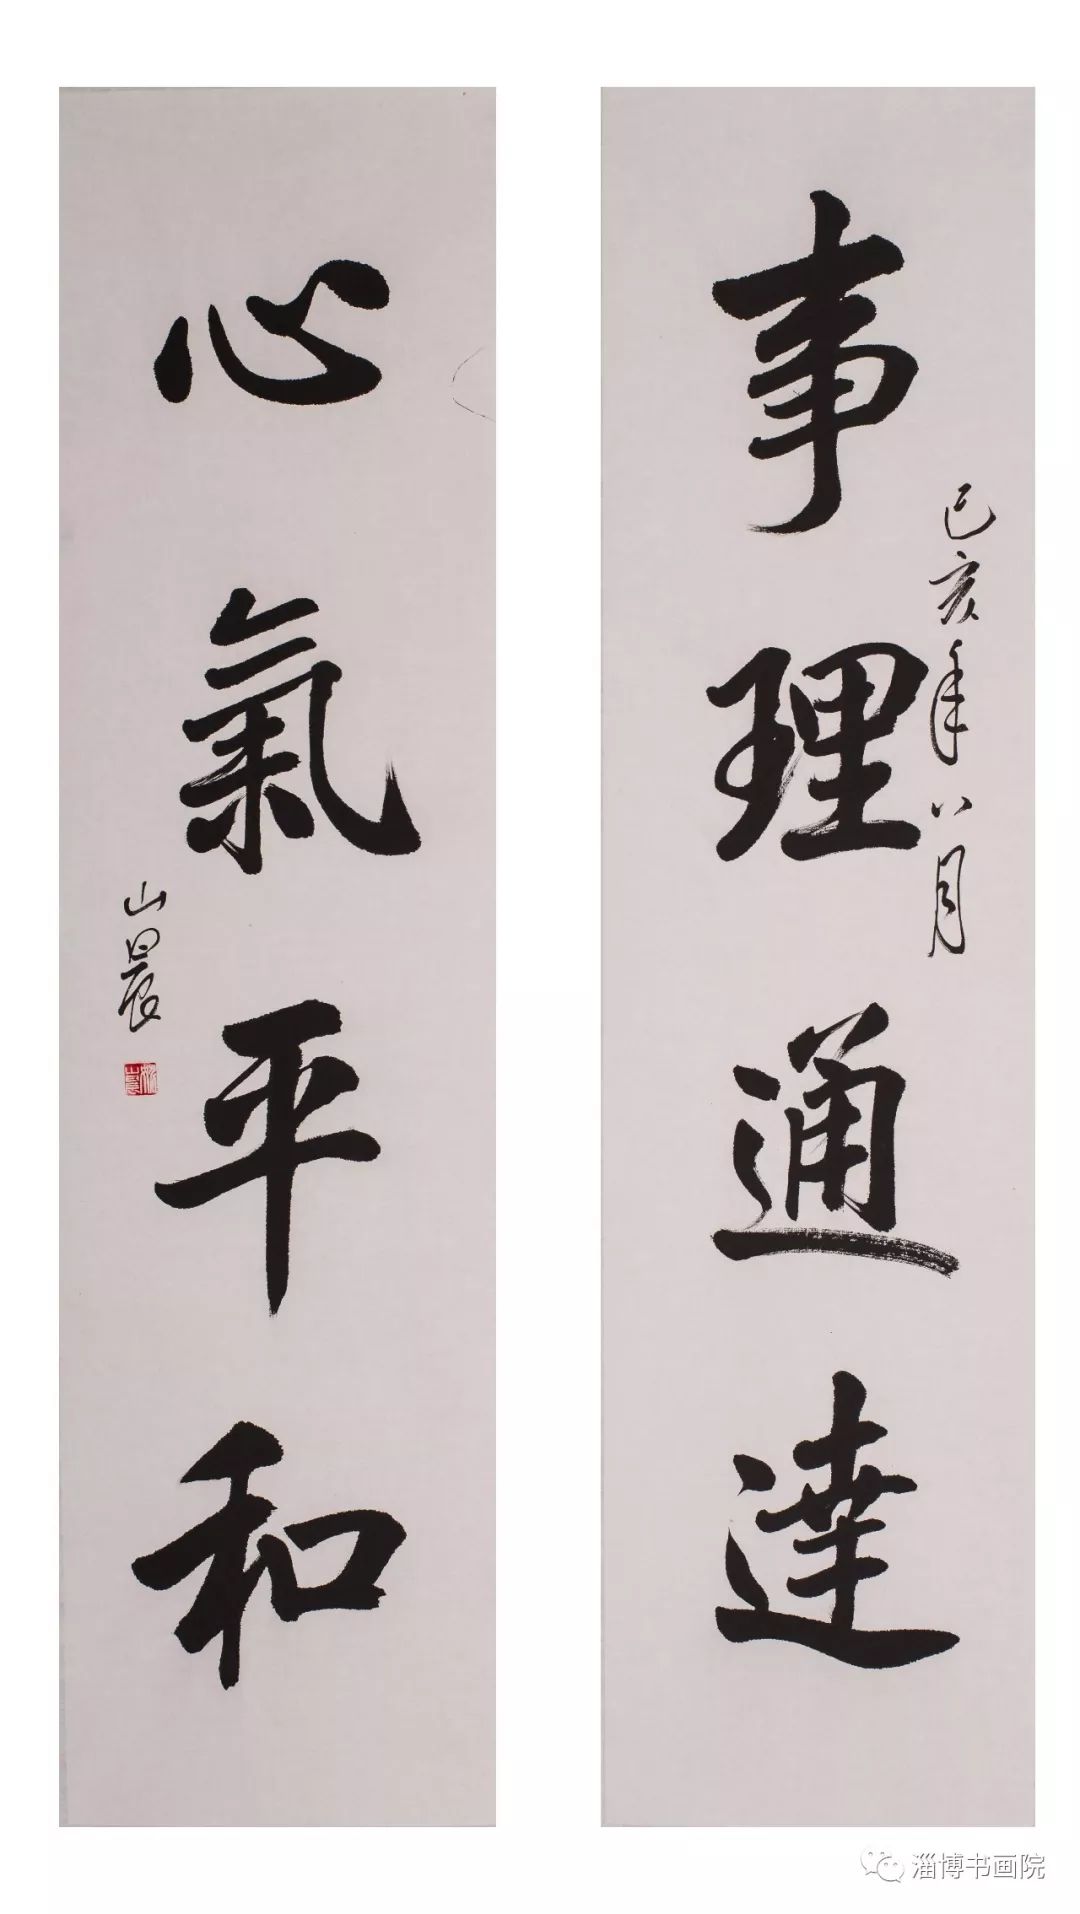 事理通達
己亥年八月
心氣平和
山晨
淄博书画院